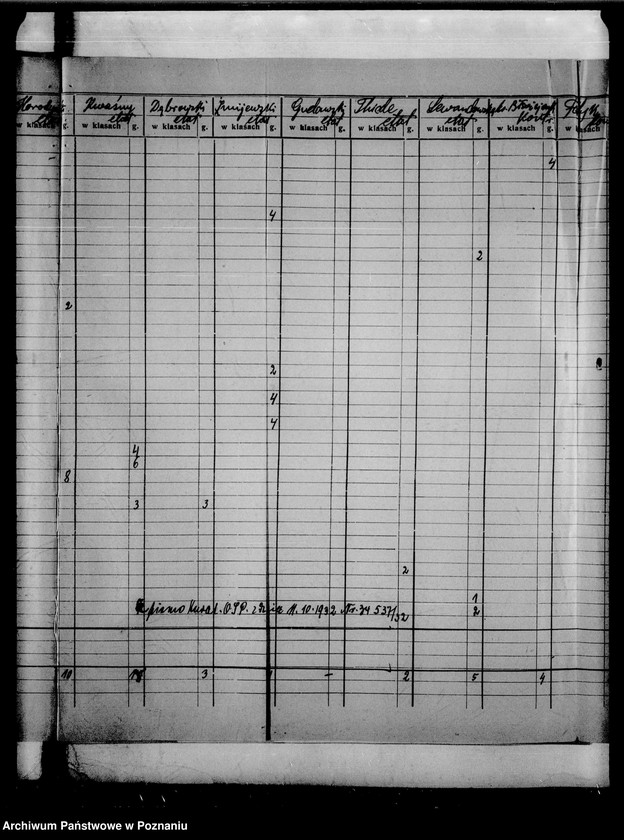 Kwaśny Dąbrowski Żmijewski Gudowski Thiele
etat etat etat etat etat etat etat
w klasach g. w klasach g. w klasach g. w klasach g. w klasach g. w klasach g. w klasach g. w klasach g. w klasach
4
4
2
2
2
4
4
4
6
8
3 3
2
1
pismo Kurat. O.S.P. z dnia 11.10.1932 Nr. 34537/32 2
10 3 2 5 4
Archiwum Państwowe w Poznaniu